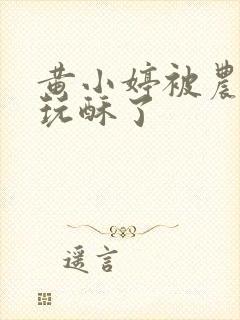 黄小婷被農
玩酥了
遥言